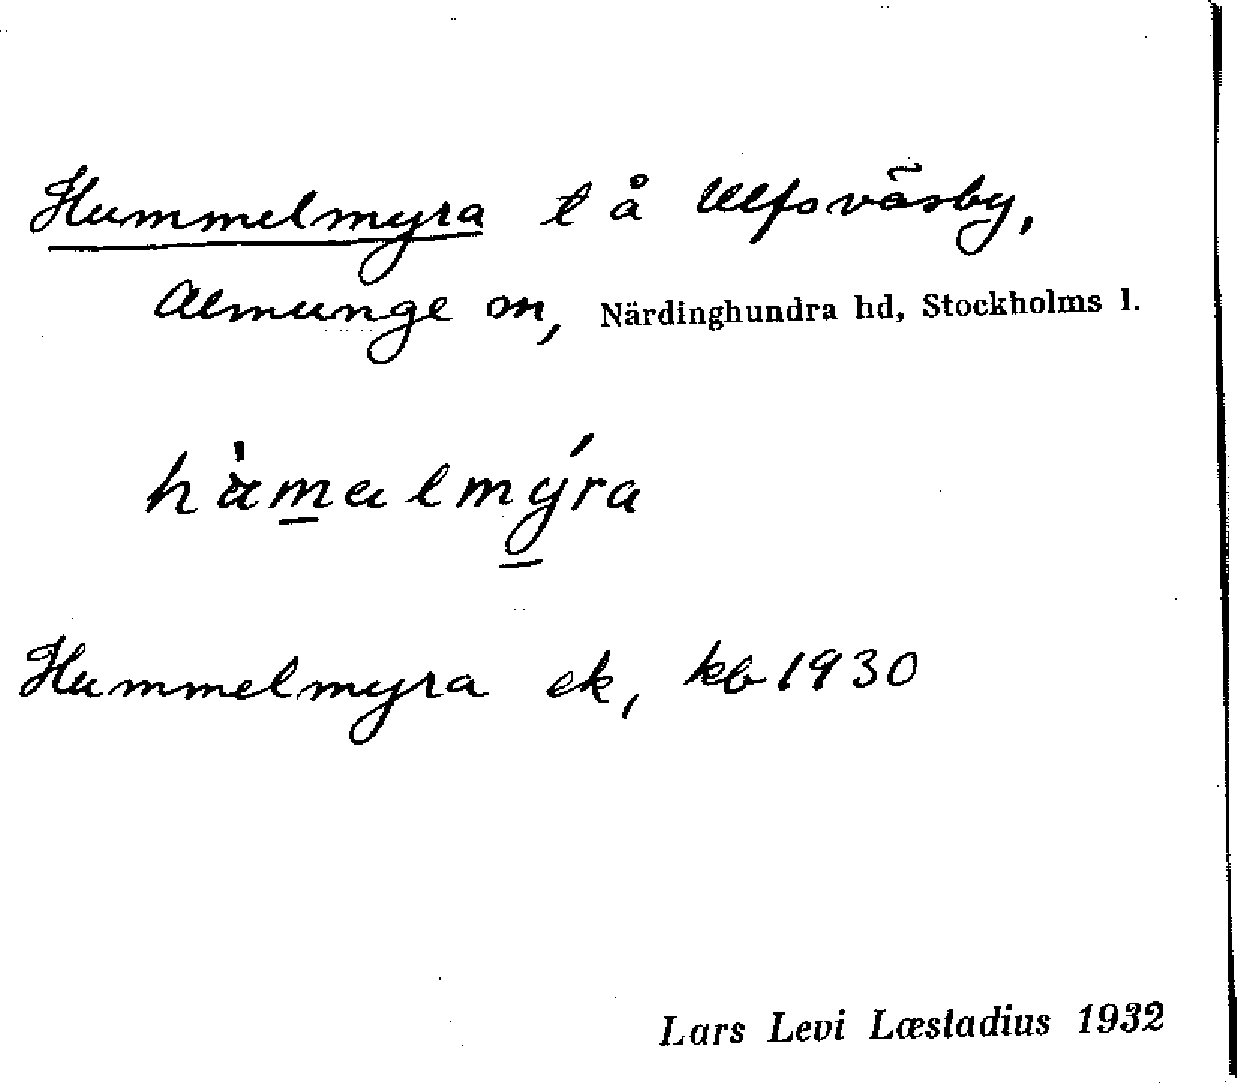 Hummelmyra t å Ulfsväsby,
Almunge sn, Närdinghundra hd, Stockholms l.
hàmalmýra
Hummelmyra ek, kb 1930
Lars Levi Læstadius 1932